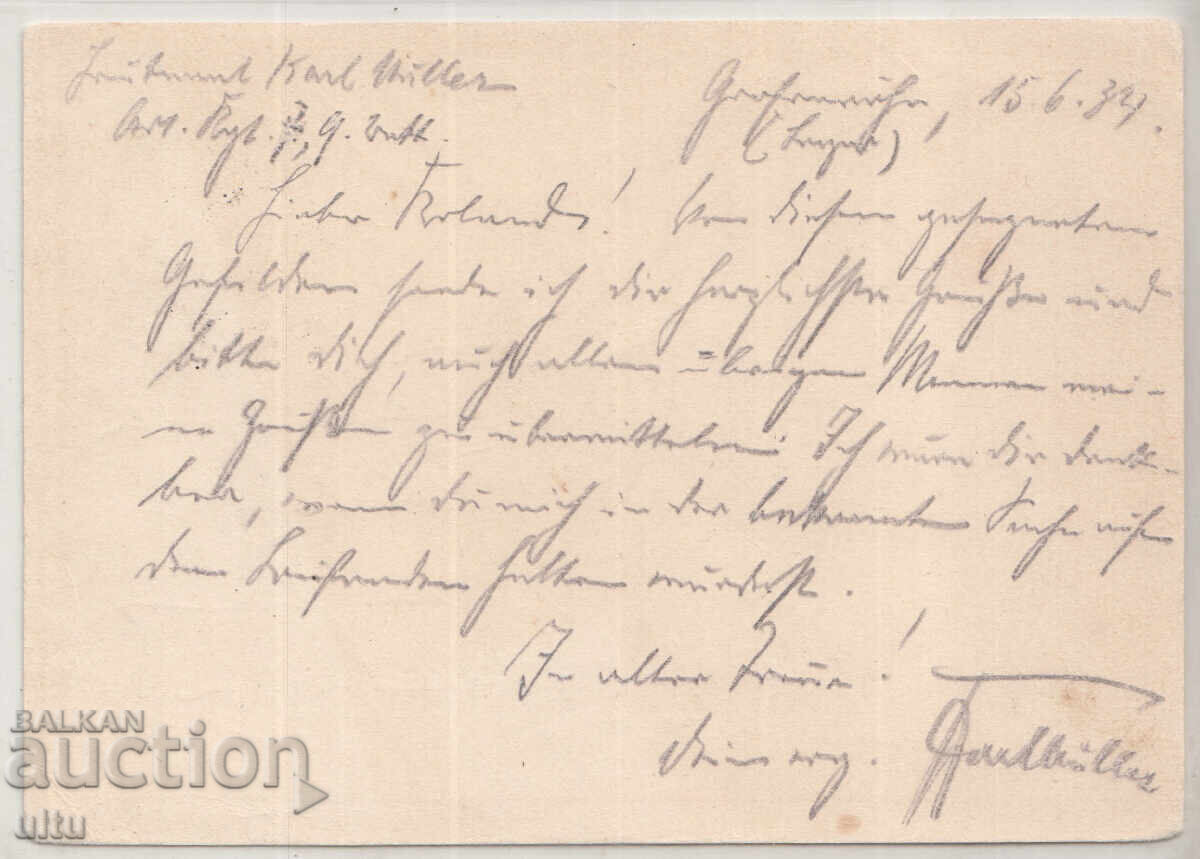 Leutnant Karl Müller
Art. Rgt. 7, 9. Batt.
Grafenwöhr, 15.6.32.
(Lager)
Lieber Roland! Von diesen gesegneten
Gefilden sende ich dir herzlichste Grüße und
bitte dich, auch allen übrigen Mannen mei-
ne Grüße zu übermitteln. Ich wäre dir dank-
bar, wenn du mich in der bekannten Sache auf
dem Laufenden halten würdest.
In alter Treue!
dein erg. Karl Müller
BALKAN
auction
ultu